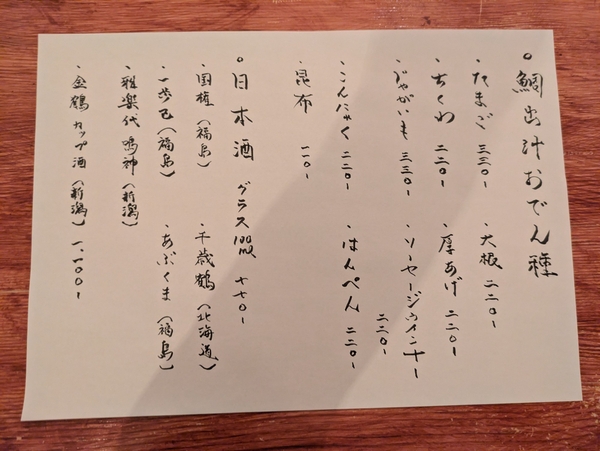 ○鯛出汁おでん種
・たまご 三三〇-
・大根 二二〇-
・ちくわ 二二〇-
・厚あげ 二二〇-
・じゃがいも 三三〇-
・ソーセージウインナー 二二〇-
・こんにゃく 二二〇-
・はんぺん 二二〇-
・昆布 一一〇-
○日本酒 グラス100ml 七七〇-
・国権(福島)
・千歳鶴(北海道)
・一歩己(福島)
・あぶくま(福島)
・雅楽代 鳴神(新潟)
・金鶴 カップ酒(新潟) 一、一〇〇-